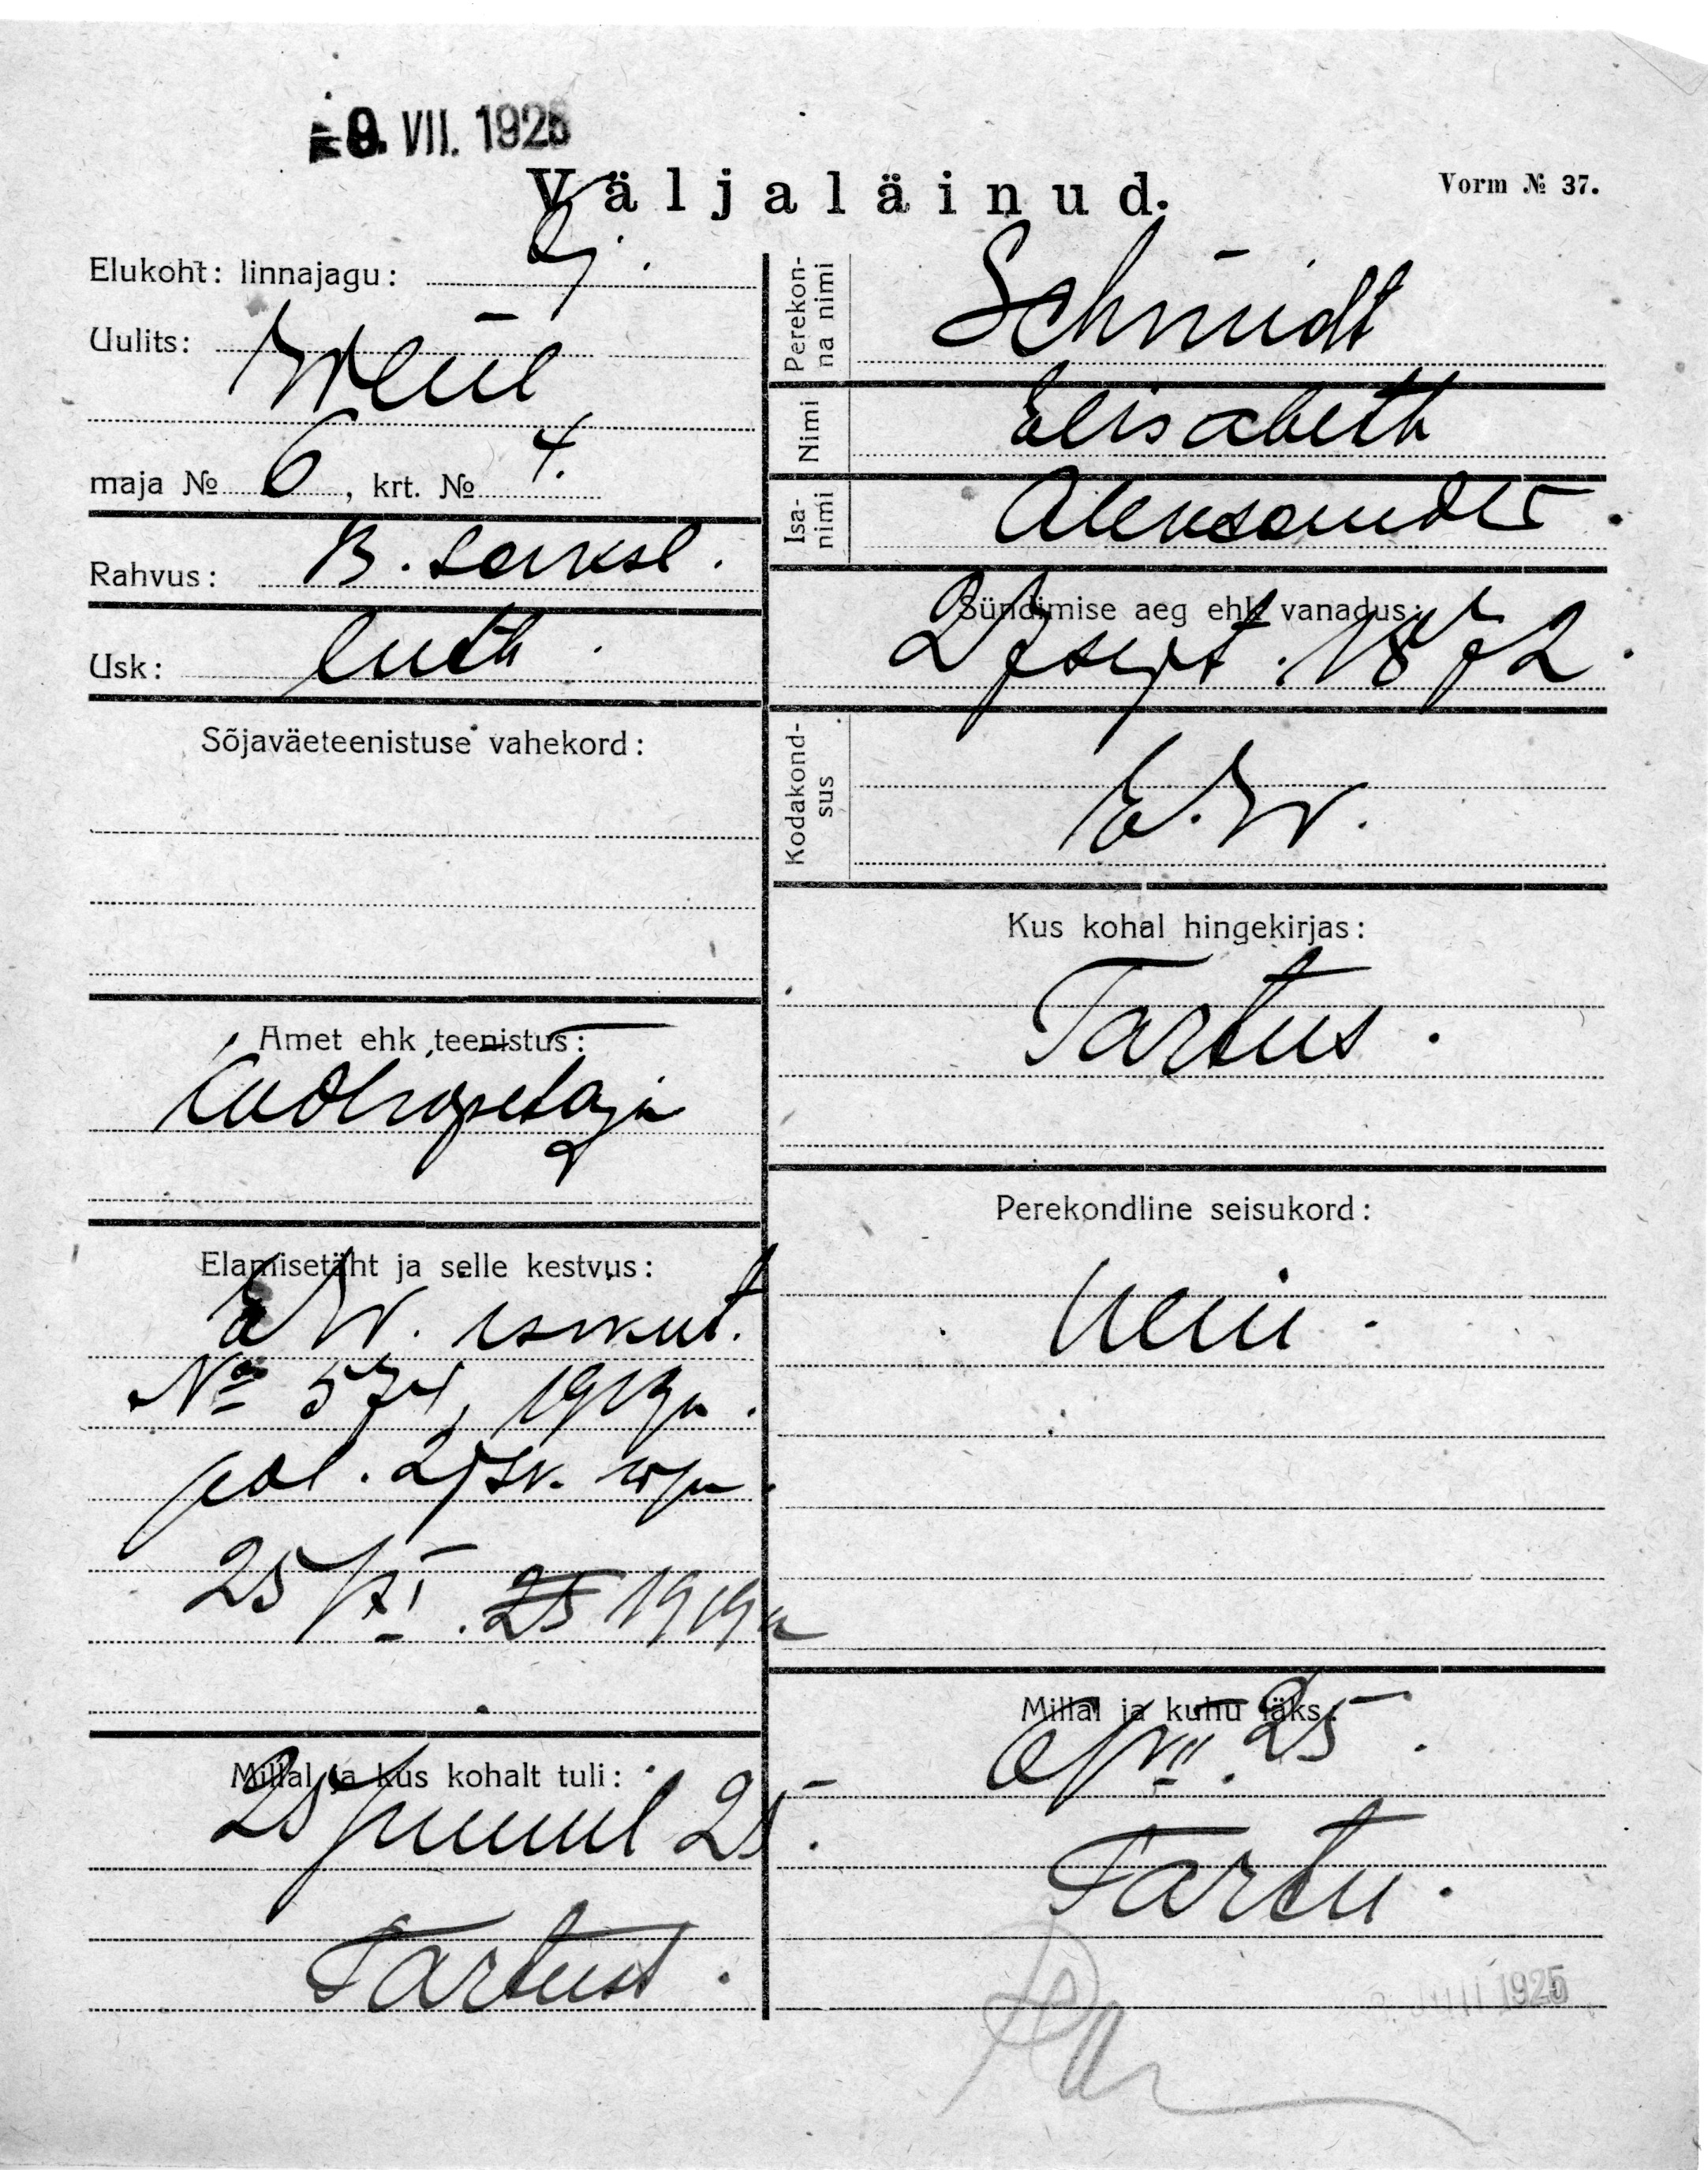 9. VII. 1925
Väljaläinud.
Vorm № 37.
Elukoht: linnajagu: 2j.
Uulits:
maja № 6, krt. № 4.
Rahvus: B. saksl.
Usk: luth.
Sõjaväeteenistuse vahekord:
Amet ehk teenistus:
kooliõpetaja
Elamisetäht ja selle kestvus:
E W. isikut.
№ 574, 1919 a.
pol. 2 jsk.
25/XI. 25 1919 a
Millal ja kus kohalt tuli:
25 juunil 25.
Tartust.
Perekonna nimi
Schmidt
Nimi
Elisabeth
Isanimi
Aleksander.
Sündimise aeg ehk vanadus:
27 sept. 1872.
Kodakondsus
E.W.
Kus kohal hingekirjas:
Tartus.
Perekondline seisukord:
neiu.
Millal ja kuhu läks:
VII. 25.
Tartu.
JUULI 1925